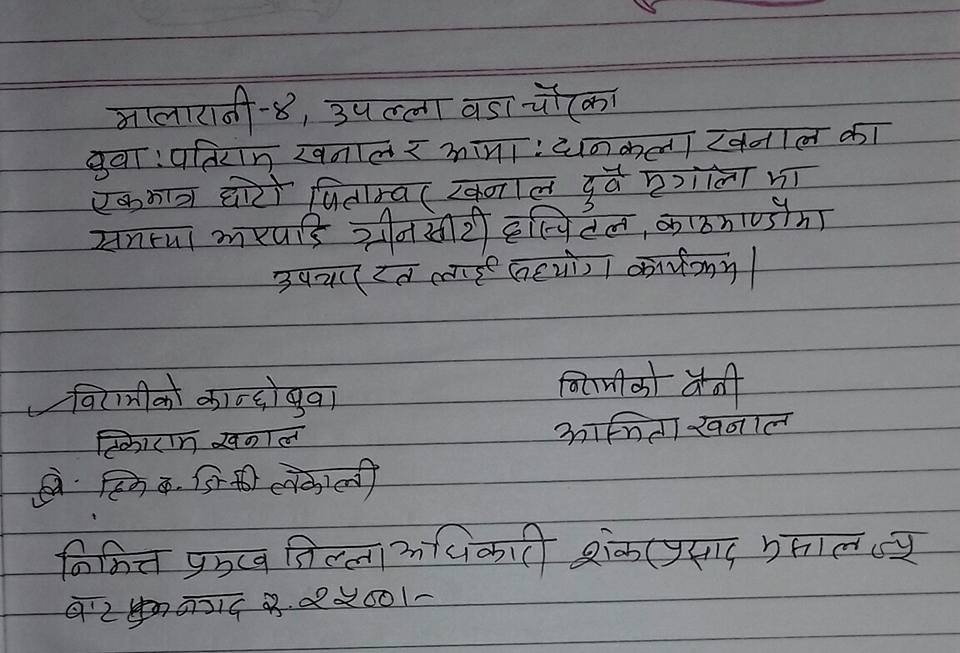 मालारानी-४, उपल्ला वडाचौरका
बुवा: पतिराम खनाल र आमा: धनकला खनाल का
एकमात्र छोरो पिताम्वर खनाल दुवै मृगौला मा
समस्या भएपछि ग्रीनसीटी हस्पितल, काठमाण्डौमा
उपचाररत लाई सहयोग कार्यक्रम।
विरामीको कान्छोबुवा
टिकाराम खनाल
विरामीको बैनी
अस्मिता खनाल
निमित्त प्रमुख जिल्ला अधिकारी शंकरप्रसाद मसाल ज्यू
बाट नगद रु. २५००।-